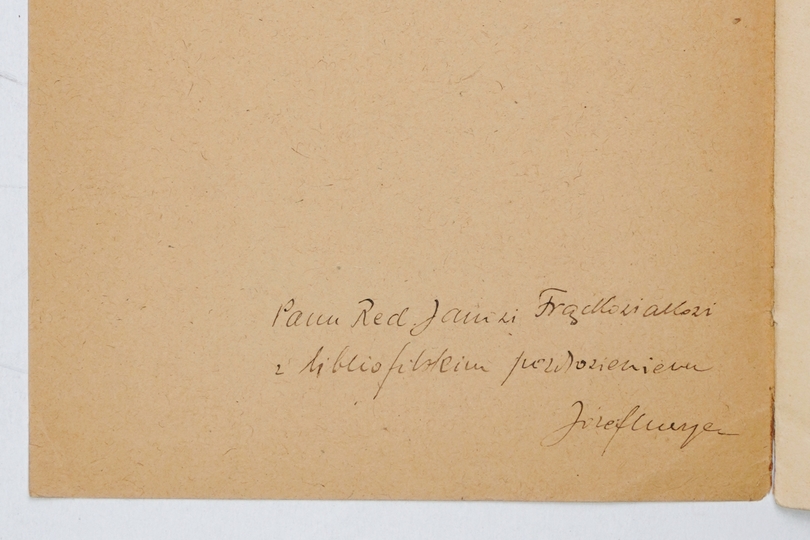 Panu Red. Janowi Frąckowiakowi
z bibliofilskim pozdrowieniem
Józef